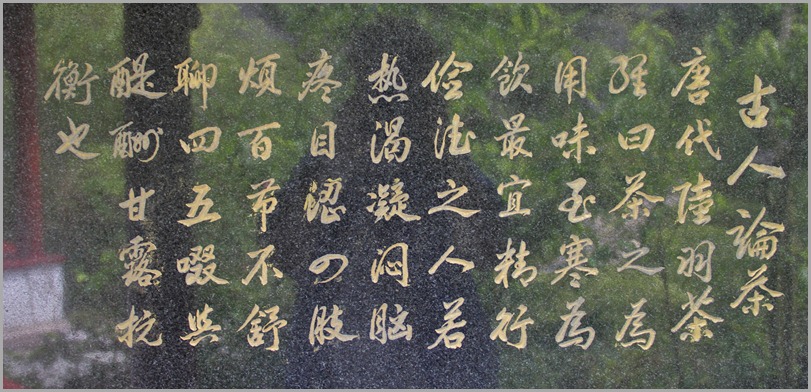 古人論茶
唐代陸羽茶
經曰茶之為
用味至寒為
飲最宜精行
儉德之人若
热渴凝闷脑
疼目澀四肢
煩百节不舒
聊四五啜與
醍醐甘露抗
衡也